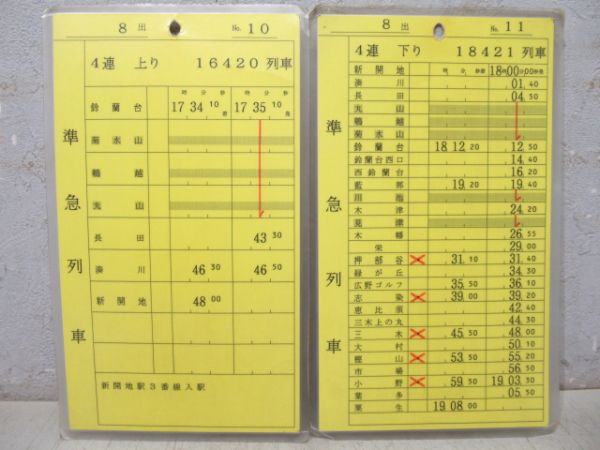 8 出 No. 10
4連 上り 16420列車
時 分 秒 時 分 秒
鈴蘭台 17 34 10着 17 35 10発
菊水山
鵯越
丸山
長田 43 30
湊川 46 30 46 50
新開地 48 00
準急列車
新開地駅3番線入駅
8 出 No. 11
4連 下り 18421列車
新開地 時 分 秒着 18時00分00秒発
湊川 01 40
長田 04 50
丸山
鵯越
菊水山
鈴蘭台 18 12 20 12 50
鈴蘭台西口 14 40
西鈴蘭台 16 20
藍那 19 20 19 40
川池
木津 24 20
見津
木幡 26 55
栄 29 00
押部谷 31 10 31 40
緑が丘 34 30
広野ゴルフ 35 50 36 10
志染 39 00 39 20
恵比須 42 40
三木上の丸 44 30
三木 45 50 48 00
大村 50 10
樫山 53 50 55 20
市場 56 50
小野 59 50 19 03 30
葉多 05 50
粟生 19 08 00
準急列車